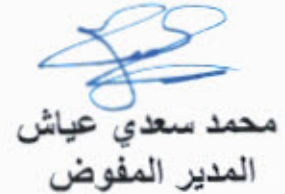 محمد سعدي عياش
المدير المفوض